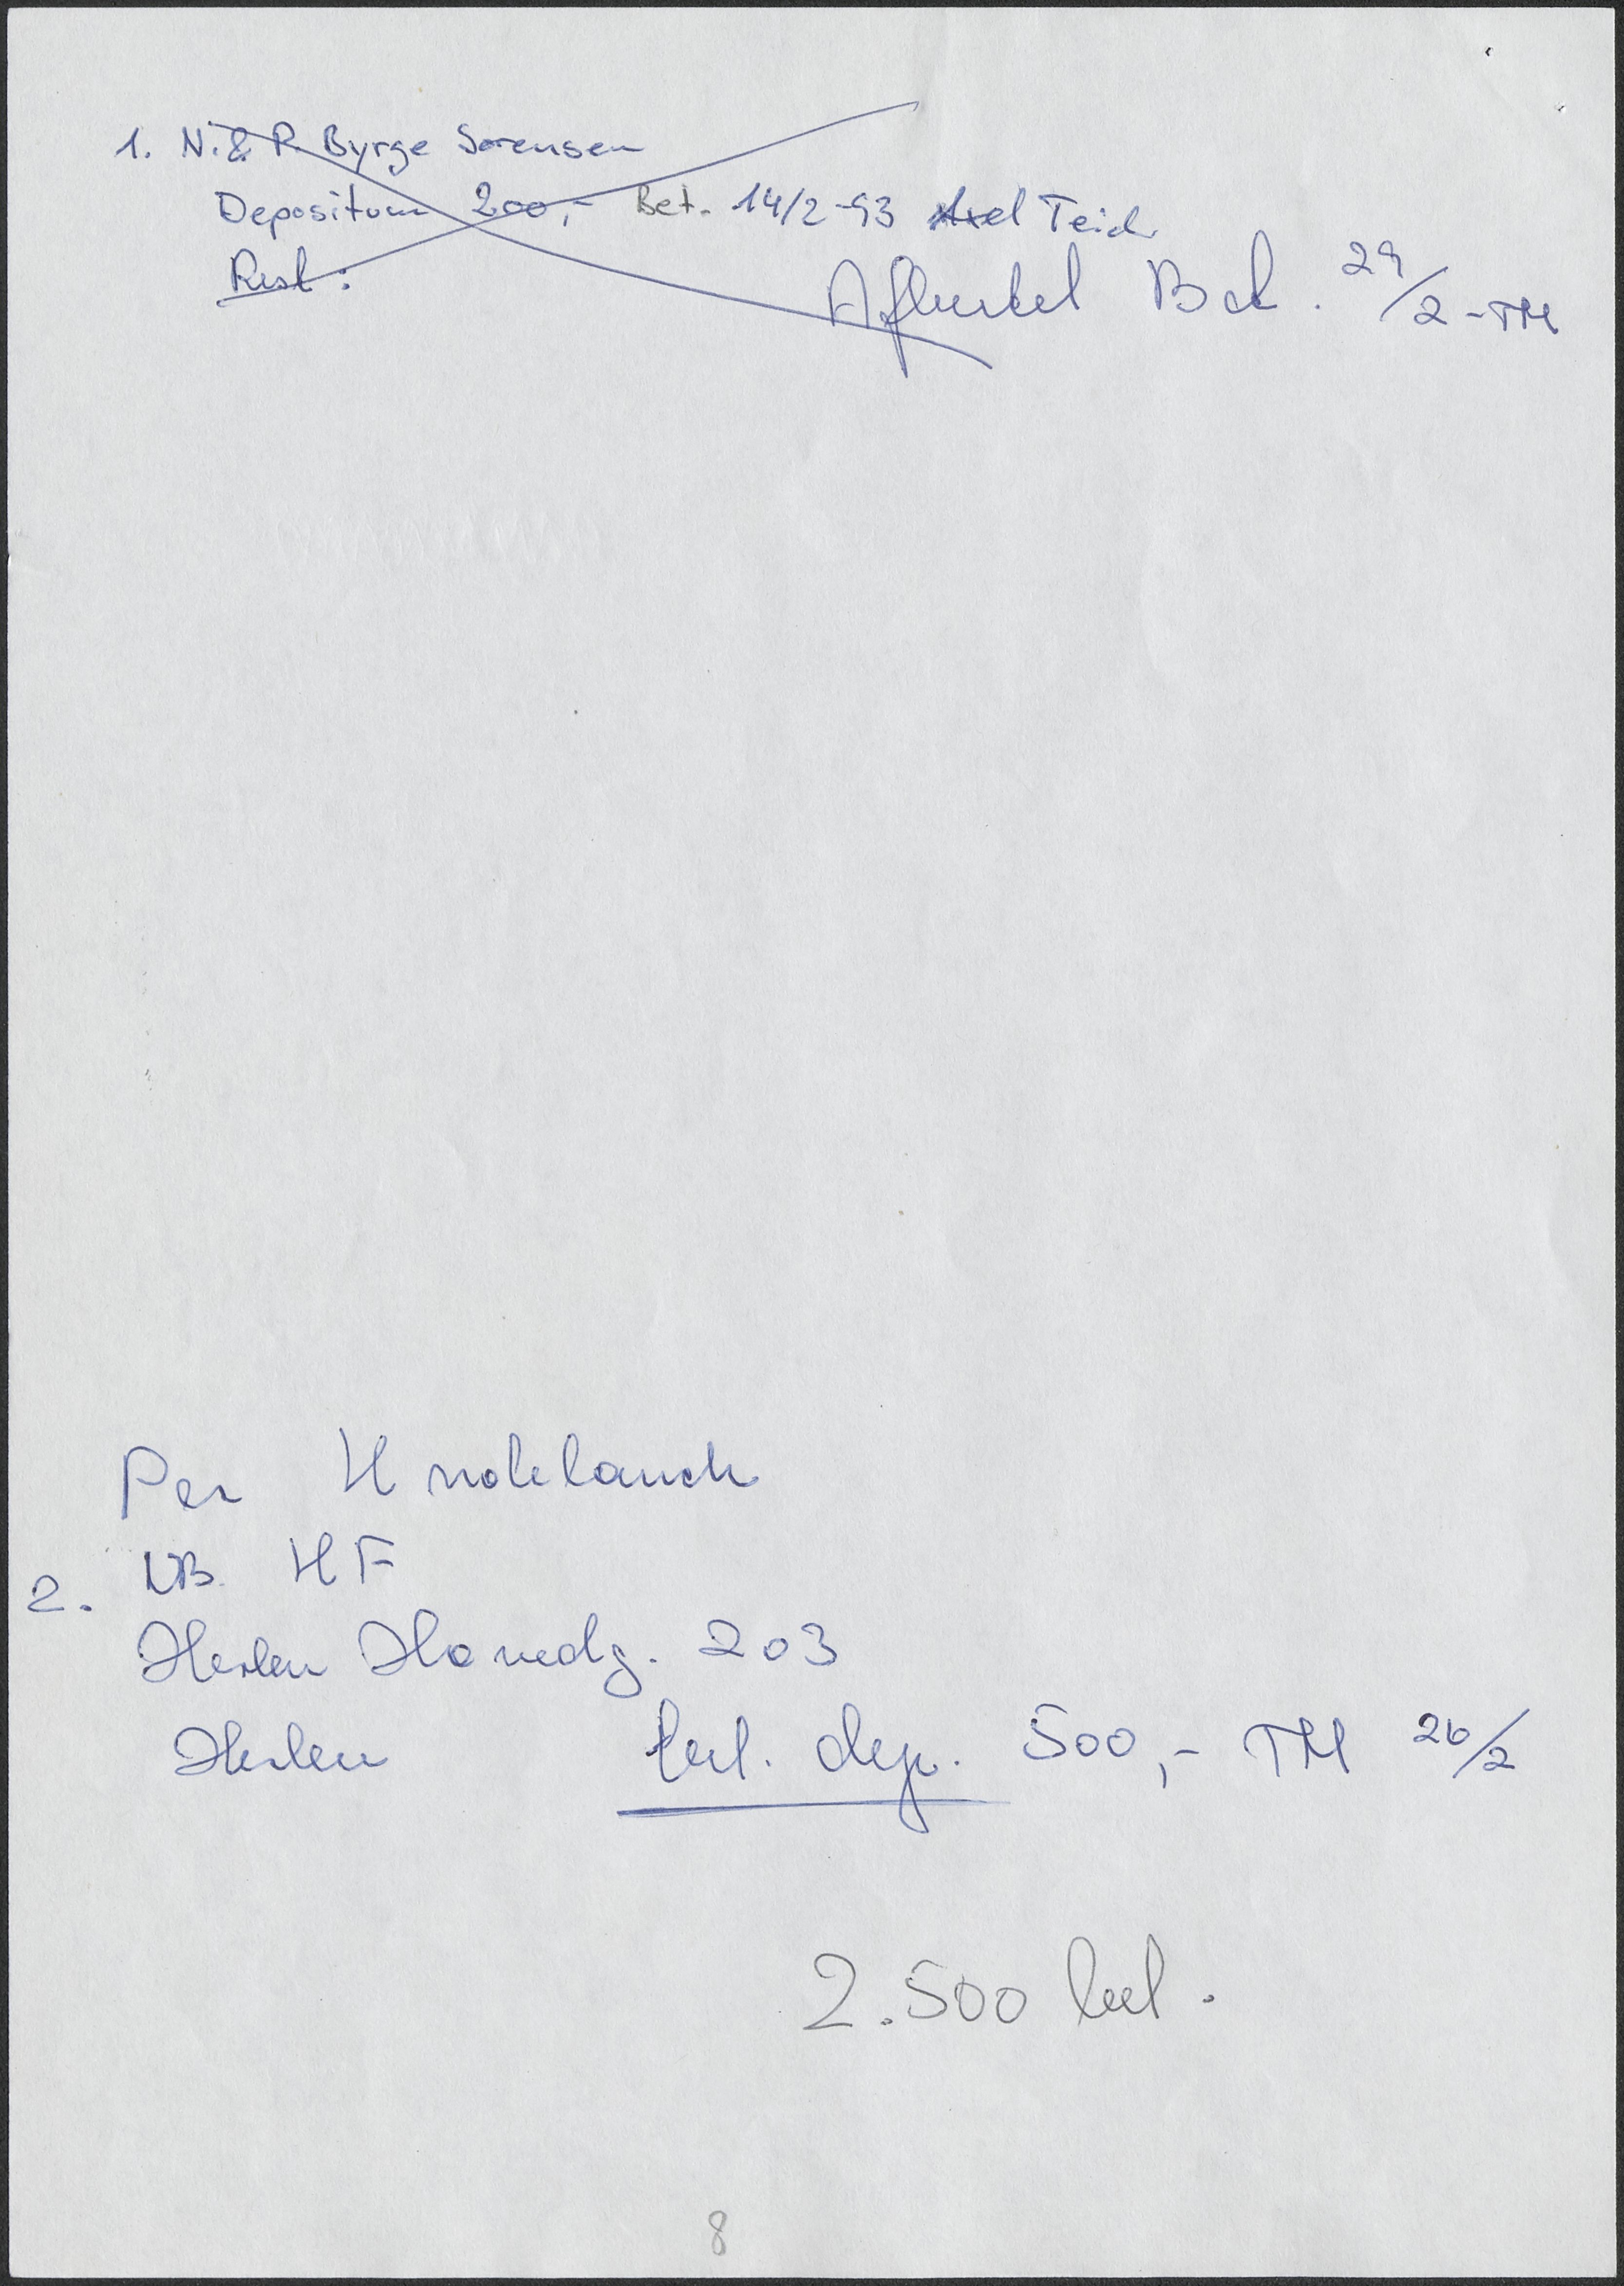 1. N. & P. Byrge Sørensen
Depositum 200,- Bet. 14/2-93 Axel Teich
Rest:
Afhentet Bet. 29/2-TM
Per
2. NB. HF
Herlev Hovedg. 203
Herlev bet. dep. 500,- TM 26/2
2.500 bet.
8